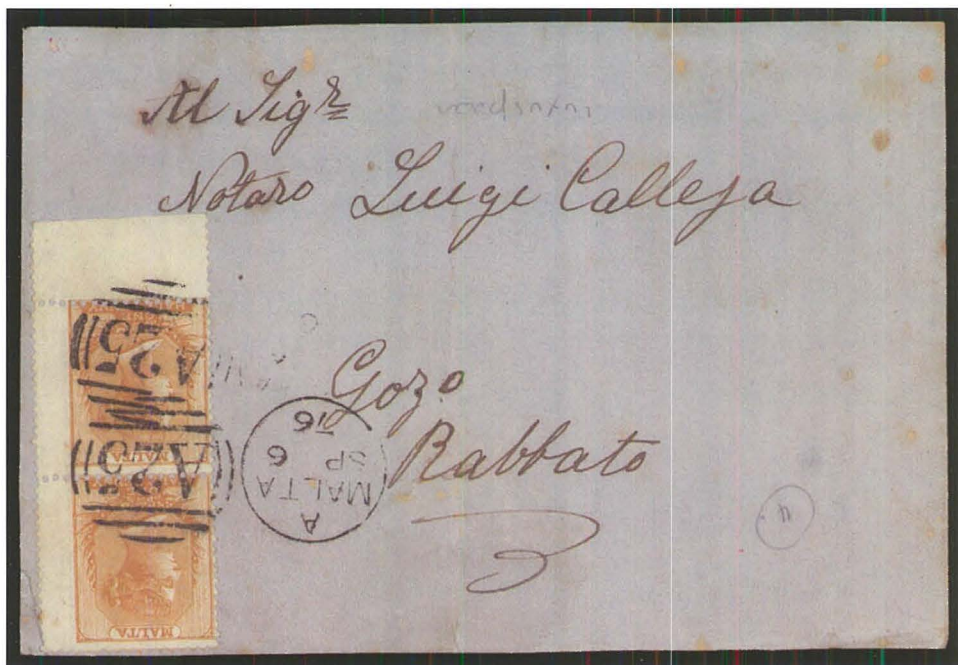 Al Sigr
Notaro Luigi Calleja
Gozo
Rabbato
A 25
A 25
A
MALTA
SP 6
76
MALTA